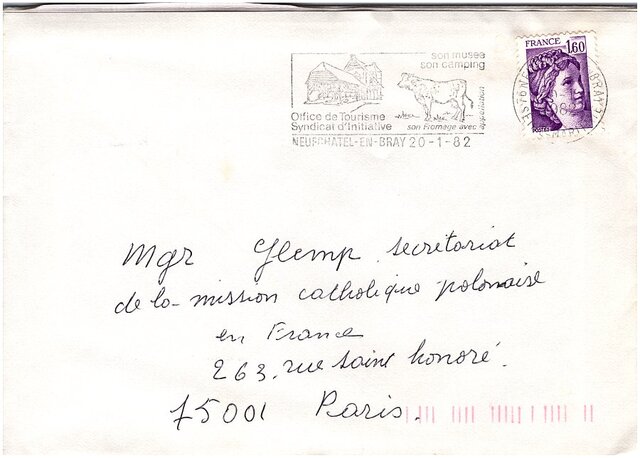 son musée
son camping
FRANCE 1,60
Office de Tourisme
Syndicat d'Initiative
son fromage avec appellation
NEUFCHATEL-EN-BRAY 20-1-82
POSTES
Mgr Glemp secrétariat
de la mission catholique polonaise
en France
263, rue Saint honoré.
75001 Paris.